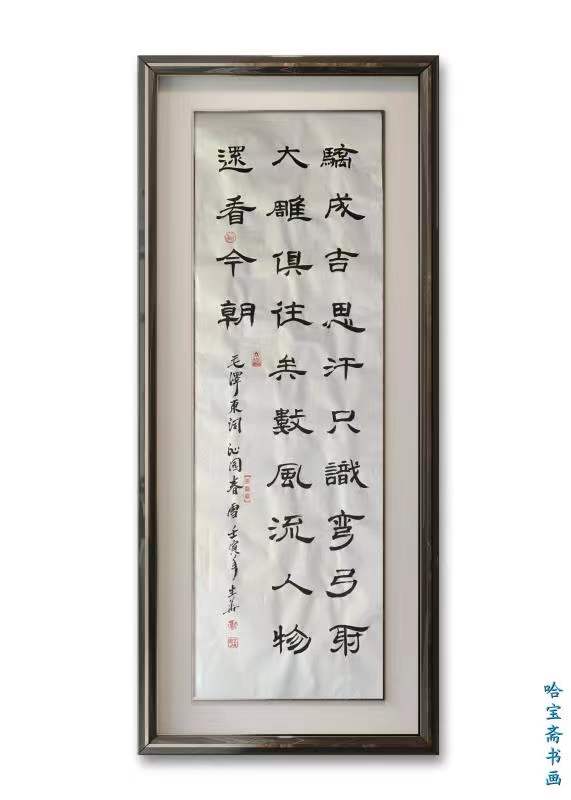 驕成吉思汗只識彎弓射
大雕俱往矣數風流人物
還看今朝
毛澤東詞沁園春雪壬寅年
哈宝斋书画